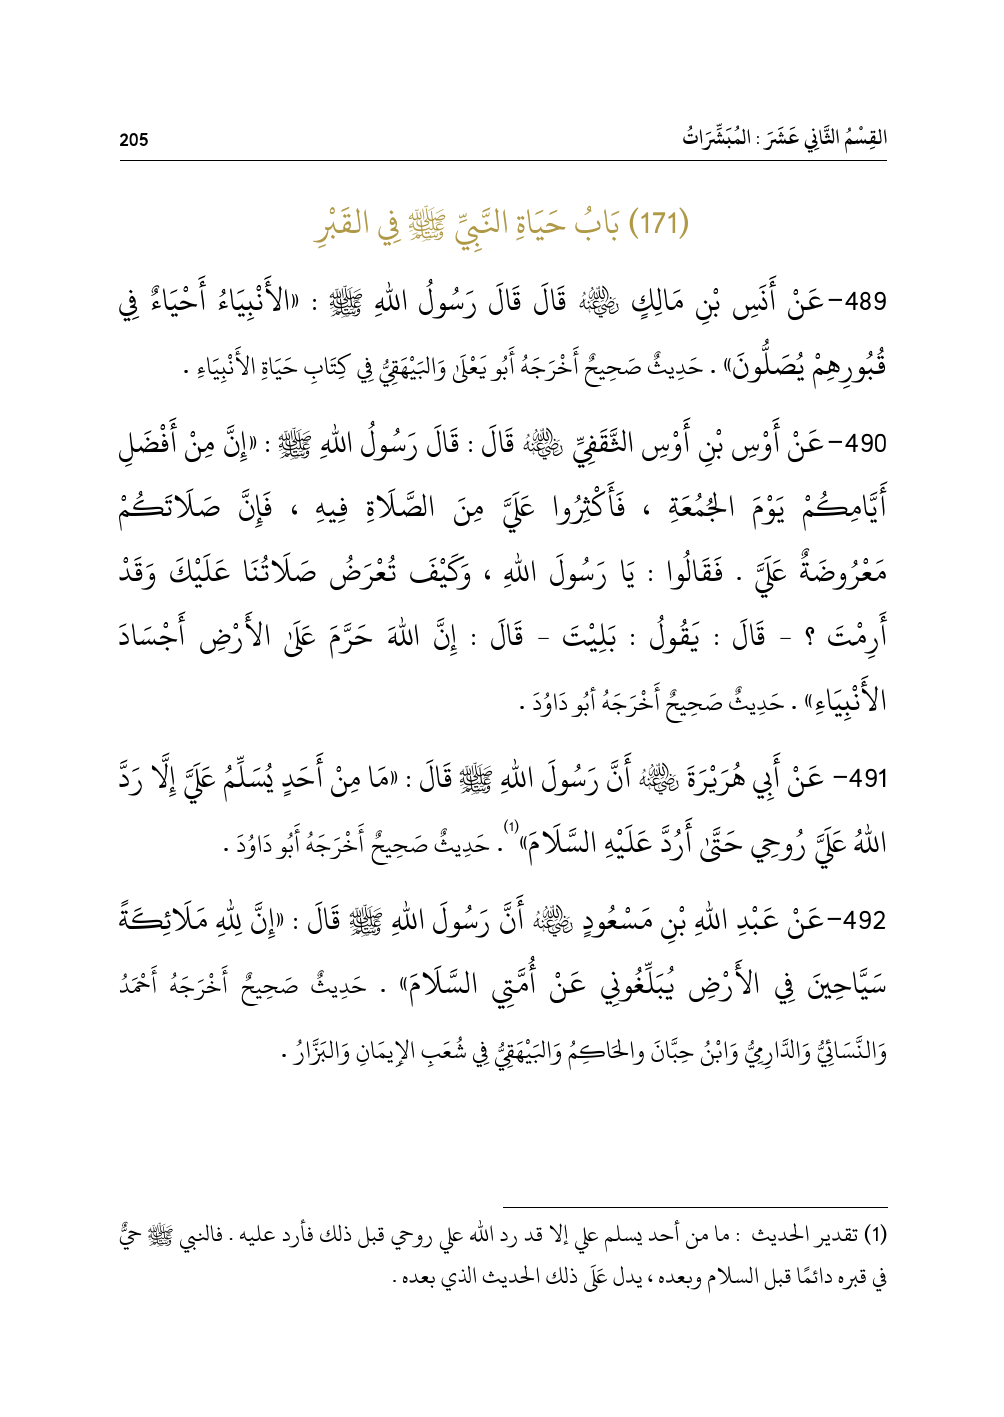 القِسْمُ الثَّانِي عَشَرَ : المُبَشِّرَاتُ 205
(171) بَابُ حَيَاةِ النَّبِيِّ ﷺ فِي القَبْرِ
489- عَنْ أَنَسِ بْنِ مَالِكٍ رضي الله عنه قَالَ قَالَ رَسُولُ اللهِ ﷺ : «الأَنْبِيَاءُ أَحْيَاءٌ فِي
قُبُورِهِمْ يُصَلُّونَ» . حَدِيثٌ صَحِيحٌ أَخْرَجَهُ أَبُو يَعْلَىٰ وَالبَيْهَقِيُّ فِي كِتَابِ حَيَاةِ الأَنْبِيَاءِ .
490- عَنْ أَوْسِ بْنِ أَوْسِ الثَّقَفِيِّ رضي الله عنه قَالَ : قَالَ رَسُولُ اللهِ ﷺ : «إِنَّ مِنْ أَفْضَلِ
أَيَّامِكُمْ يَوْمَ الجُمُعَةِ ، فَأَكْثِرُوا عَلَيَّ مِنَ الصَّلَاةِ فِيهِ ، فَإِنَّ صَلَاتَكُمْ
مَعْرُوضَةٌ عَلَيَّ . فَقَالُوا : يَا رَسُولَ اللهِ ، وَكَيْفَ تُعْرَضُ صَلَاتُنَا عَلَيْكَ وَقَدْ
أَرِمْتَ ؟ - قَالَ : يَقُولُ : بَلِيْتَ - قَالَ : إِنَّ اللهَ حَرَّمَ عَلَىٰ الأَرْضِ أَجْسَادَ
الأَنْبِيَاءِ» . حَدِيثٌ صَحِيحٌ أَخْرَجَهُ أبُو دَاوُدَ .
491- عَنْ أَبِي هُرَيْرَةَ رضي الله عنه أَنَّ رَسُولَ اللهِ ﷺ قَالَ : «مَا مِنْ أَحَدٍ يُسَلِّمُ عَلَيَّ إِلَّا رَدَّ
اللهُ عَلَيَّ رُوحِي حَتَّىٰ أَرُدَّ عَلَيْهِ السَّلَامَ»(1). حَدِيثٌ صَحِيحٌ أَخْرَجَهُ أَبُو دَاوُدَ .
492- عَنْ عَبْدِ اللهِ بْنِ مَسْعُودٍ رضي الله عنه أَنَّ رَسُولَ اللهِ ﷺ قَالَ : «إِنَّ لِلّٰهِ مَلَائِكَةً
سَيَّاحِينَ فِي الأَرْضِ يُبَلِّغُونِي عَنْ أُمَّتِي السَّلَامَ» . حَدِيثٌ صَحِيحٌ أَخْرَجَهُ أَحْمَدُ
وَالنَّسَائِيُّ وَالدَّارِمِيُّ وَابْنُ حِبَّانَ والحَاكِمُ وَالبَيْهَقِيُّ فِي شُعَبِ الإِيمَانِ وَالبَزَّارُ .
(1) تقدير الحديث : ما من أحد يسلم علي إلا قد رد الله علي روحي قبل ذلك فأرد عليه . فالنبي ﷺ حيٌّ
في قبره دائمًا قبل السلام وبعده ، يدل عَلَى ذلك الحديث الذي بعده .